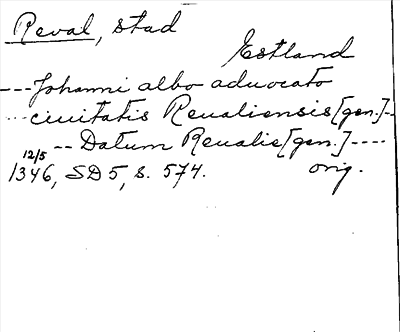 Reval, stad
Estland
---Johanni albo aduocato
...ciuitatis Reualiensis [gen.]--
12/5 -- Datum Reualie [gen.] ----
1346, SD 5, s. 574. orig.